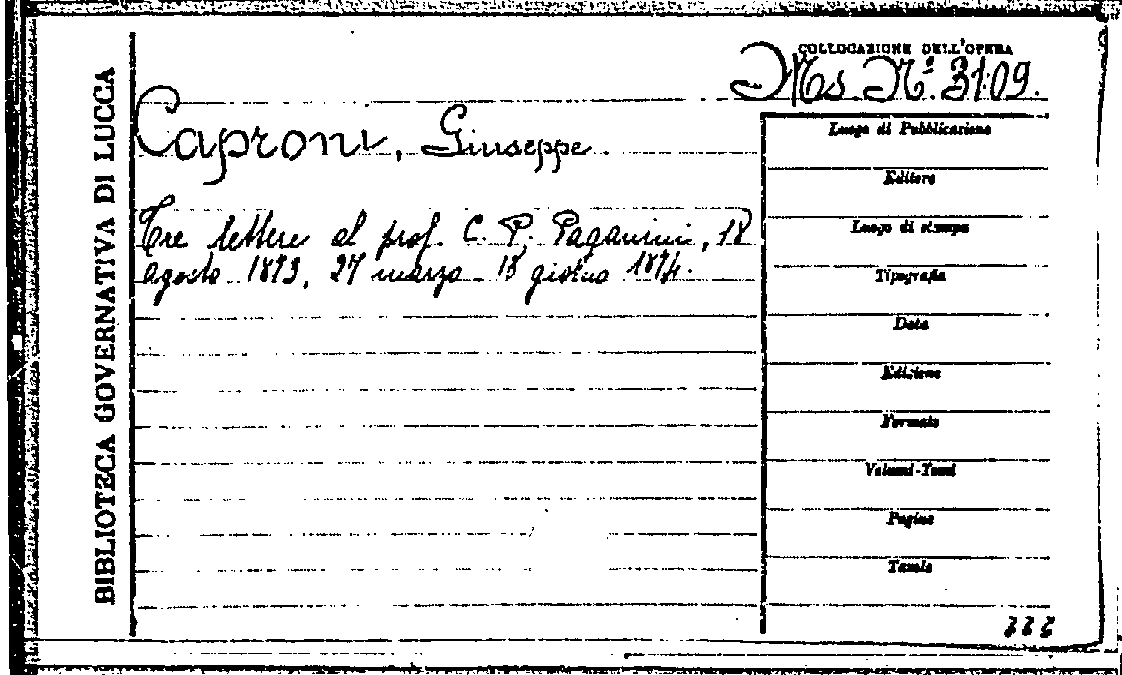 BIBLIOTECA GOVERNATIVA DI LUCCA
COLLOCAZIONE DELL'OPERA
Ms. Nº. 3109.
Caproni, Giuseppe.
Tre lettere al prof. C. P. Paganini, 18
agosto 1873, 27 marzo 18 giugno 1874.
Luogo di Pubblicazione
Editore
Luogo di stampa
Tipografia
Data
Edizione
Formato
Volumi-Tomi
Pagine
Tavole